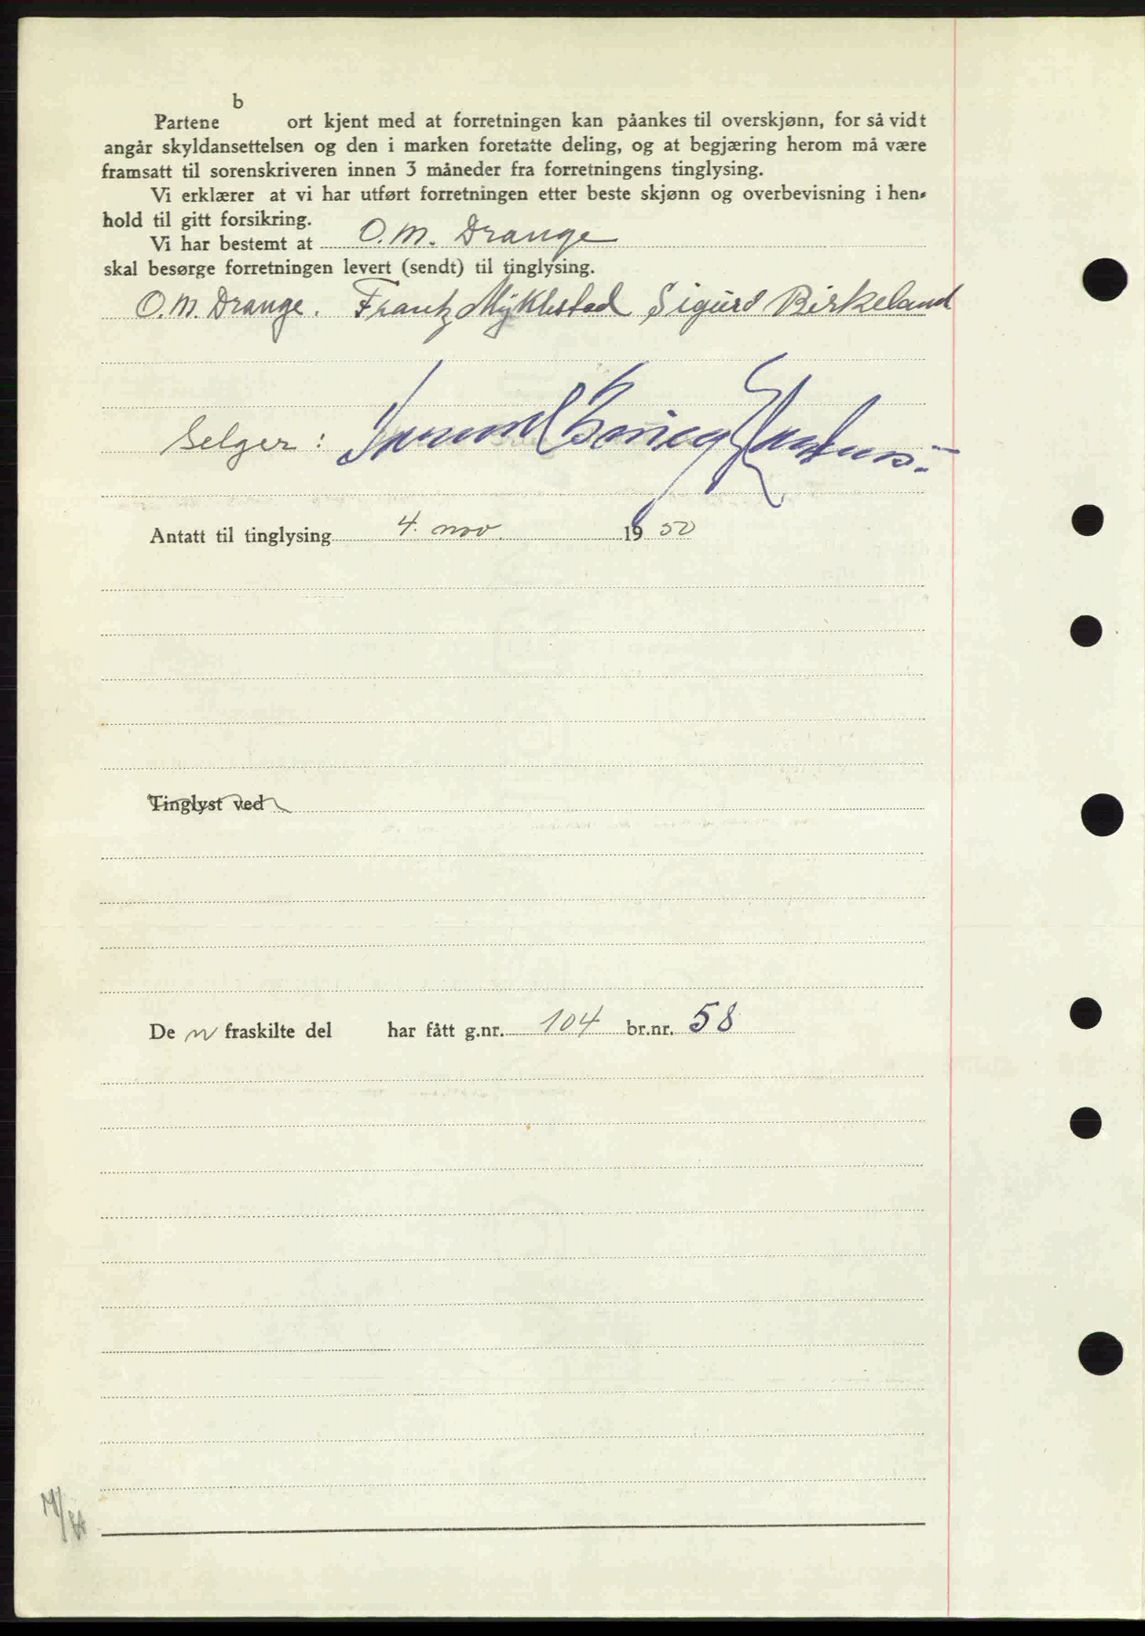 b
Partene ort kjent med at forretningen kan påankes til overskjønn, for så vidt
angår skyldansettelsen og den i marken foretatte deling, og at begjæring herom må være
framsatt til sorenskriveren innen 3 måneder fra forretningens tinglysing.
Vi erklærer at vi har utført forretningen etter beste skjønn og overbevisning i hen-
hold til gitt forsikring.
Vi har bestemt at O. M. Drange
skal besørge forretningen levert (sendt) til tinglysing.
O. M. Drange. Frantz Myklestad Sigurd Birkeland
Selger:
Antatt til tinglysing 4. nov. 1950
Tinglyst ved
De n fraskilte del har fått g.nr. 104 br.nr. 58